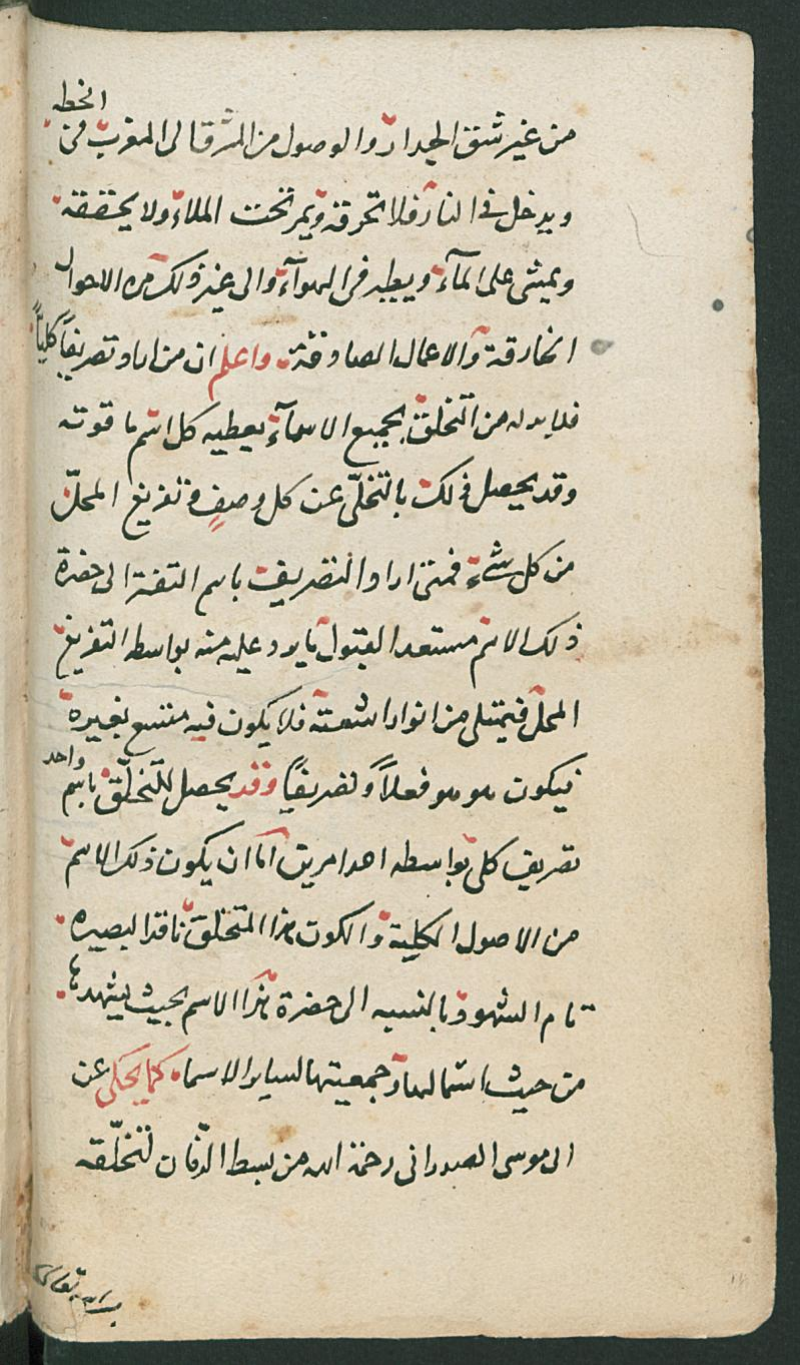 من غير شق الجدار والوصول من المشرق الى المغرب فى اللحظه
ويدخل فى النار فلا تحرقه ويمر تحت الملاء ولا يخنقه
ويمشى على المآء ويطير فى الهوآء والى غير ذلك من الاحوال
الخارقة والاعمال الصادقة واعلم ان من اراد تصريفاً كلياً
فلابد له من التخلق بجميع الاسمآء يعطيه كل اسم ما قوته
وقد يحصل ذلك بالتخلّى عن كل وصفٍ وتفريغ المحلّ
من كل شىء فمتى اراد التصريف باسم التفت الى حضرة
ذلك الاسم مستعد القبول ما يرد عليه منه بواسطه التفريغ
المحل فيمتلى من انوار اشعته فلا يكون فيه متسع بغيره
فيكون هو هو فعلاً وتصريفاً وقد يحصل للتخلّق باسم واحد
تصريف كلى بواسطه احد امرين امّا ان يكون ذلك الاسم
من الاصول الكلية والكون هذا المتخلق نافذ البصيره
تام الشهود بالنسبه الى حضرة هذا الاسم بحيث يشهدها
من حيث اشتمالها وجمعيتها لساير الاسماء كما يحكى عن
ابى موسى الصدرانى رحمة الله من بسط الزمان لتخلّقه